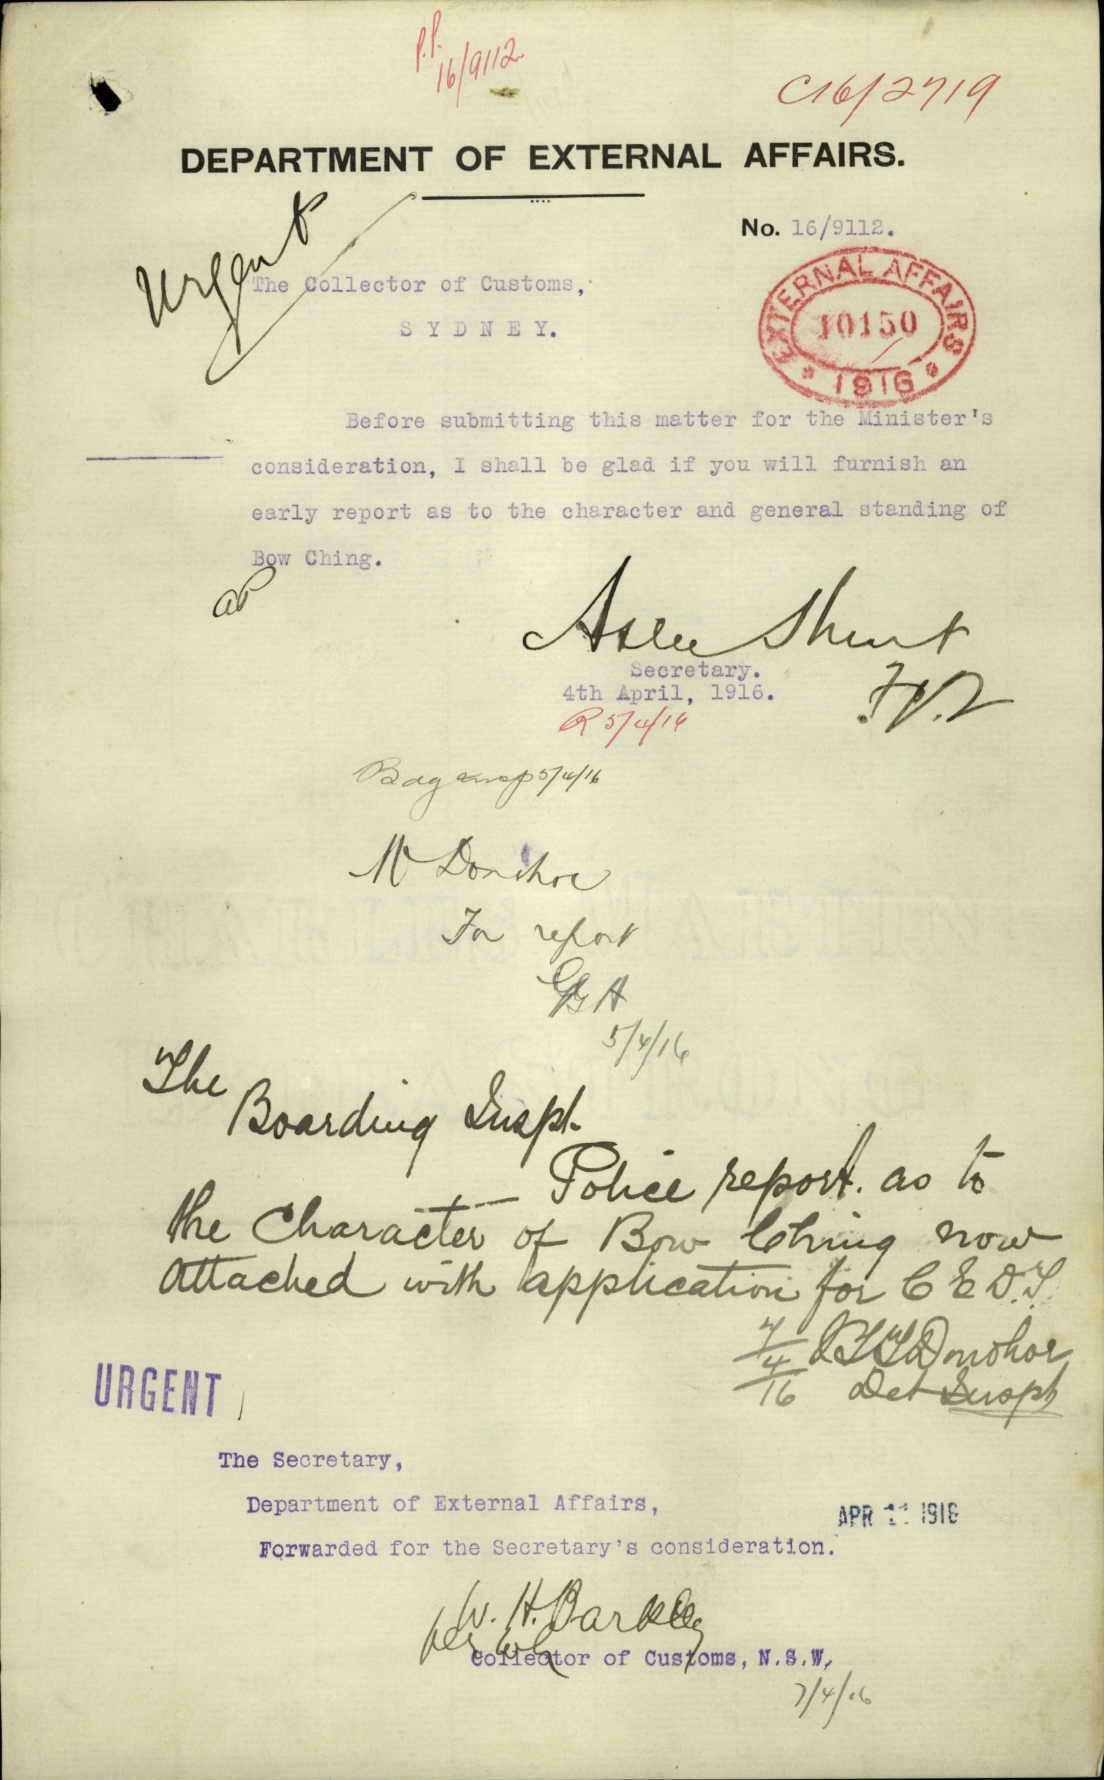 P.P.
16/9112
C16/2719
DEPARTMENT OF EXTERNAL AFFAIRS.
Urgent
No. 16/9112.
The Collector of Customs,
SYDNEY.
EXTERNAL AFFAIRS
10150
1916
Before submitting this matter for the Minister's
consideration, I shall be glad if you will furnish an
early report as to the character and general standing of
Bow Ching.
Atlee Hunt
Secretary.
4th April, 1916.
R 5/4/16
5/4/16
Mr Donohoe
For report
5/4/16
The
Boarding Inspr.
Police report. as to
the Character of Bow Ching now
attached with application for C E D.T.
7/4/16
Donohoe
Det Inspr
URGENT
The Secretary,
Department of External Affairs,
APR 11 1916
Forwarded for the Secretary's consideration.
W. H. Barkley
Collector of Customs, N.S.W.
7/4/16